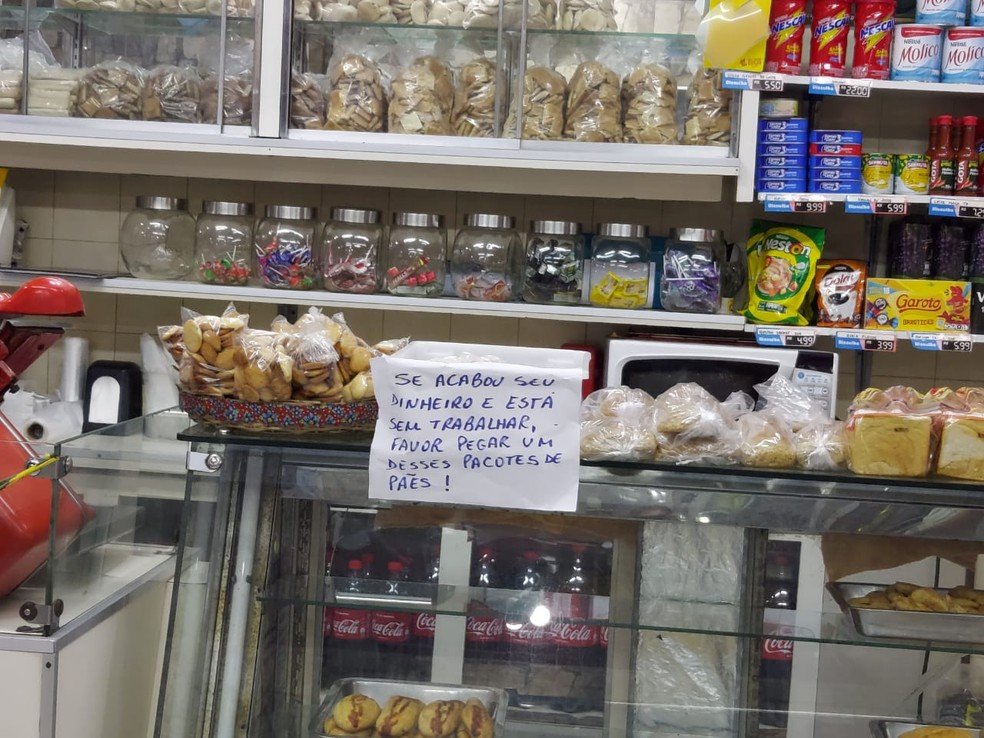 NESCAU
NESCAU
NESCAU
Nestlé
MOLICO
Nestlé
MOLICO
5,50
22,00
GOTA
GOTA
9,99
5,99
Neston
Garoto
4,99
3,99
5,99
SE ACABOU SEU
DINHEIRO E ESTÁ
SEM TRABALHAR,
FAVOR PEGAR UM
DESSES PACOTES DE
PÃES !
Coca-Cola
Coca-Cola
Coca-Cola
Coca-Cola